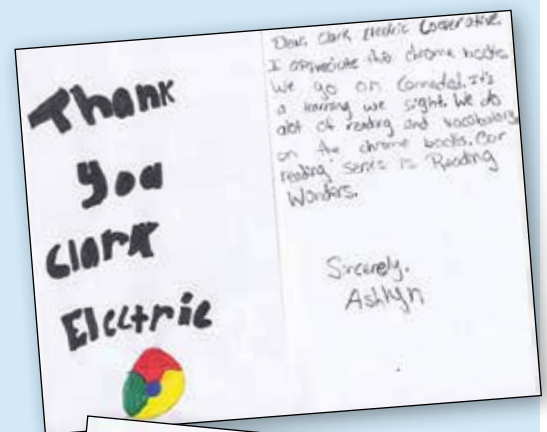 Thank
you
Clark
Electric
Dear Clark Electric Cooperative,
I appreciate the chrome books.
We go on Connected. It's
a learning we sight. We do
alot of reading and vocabulary
on the chrome books. Our
reading series is Reading
Wonders.
Sincerely,
Ashlyn